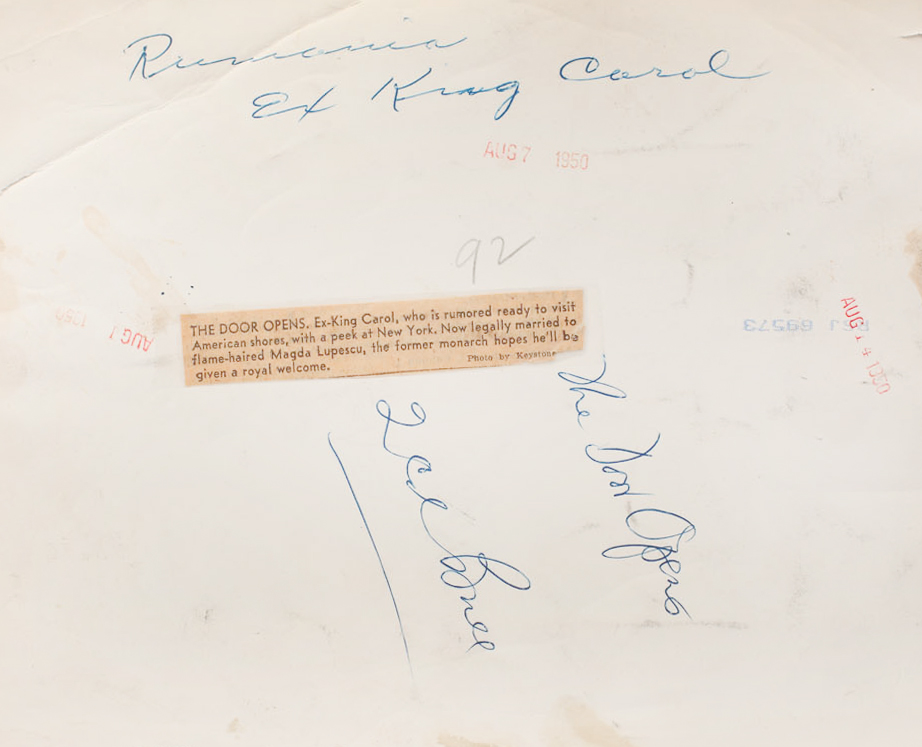 Rumania
Ex King Carol
AUG 7 1950
92
THE DOOR OPENS. Ex-King Carol, who is rumored ready to visit
American shores, with a peek at New York. Now legally married to
flame-haired Magda Lupescu, the former monarch hopes he'll be
given a royal welcome.
Photo by Keystone
AUG 7
1950
69573
AUG 14 1950
The Door Opens
2 col